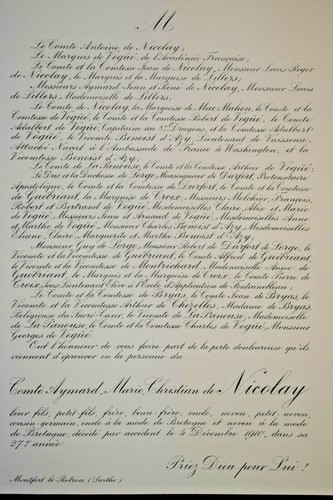 M
Le Comte Antoine de Nicolay;
Le Marquis de Vogüé, de l'Académie Française;
Le Comte et la Comtesse Jean de Nicolay, Monsieur Louis-Roger
de Nicolay, le Marquis et la Marquise de Lillers;
Messieurs Aymard-Jean et René de Nicolay, Monsieur Louis
de Lillers, Mademoiselle de Lillers;
Le Comte de Nicolay, la Marquise de Mac Mahon, le Comte et la
Comtesse de Vogüé, le Comte et la Comtesse Robert de Vogüé, le Comte
Adalbert de Vogüé, Capitaine au Dragons, et la Comtesse Adalbert
de Vogüé, le Vicomte Benoist d'Azy, Lieutenant de Vaisseau,
Attaché Naval à l'Ambassade de France à Washington, et la
Vicomtesse Benoist d'Azy;
Le Comte de La Panouse, le Comte et la Comtesse Arthur de Vogüé;
Le Duc et la Duchesse de Lorge, Monseigneur de Durfort, Protonotaire
Apostolique, le Comte et la Comtesse de Durfort, le Comte et la Comtesse
de Guébriant, la Marquise de Croix, Messieurs Melchior, François,
Robert et Bertrand de Vogüé, Mesdemoiselles Claire, Alix et Marie
de Vogüé, Messieurs Jean et Arnaud de Vogüé, Mesdemoiselles Anne
et Marthe de Vogüé, Monsieur Charles Benoist d'Azy, Mesdemoiselles
Eliane, Claire, Marguerite et Marthe Benoist d'Azy;
Monsieur Guy de Lorge, Monsieur Robert de Durfort de Lorge, le
Vicomte et la Vicomtesse de Guébriant, le Comte Alfred de Guébriant,
le Vicomte et la Vicomtesse de Montrichard, Mademoiselle Anne de
Guébriant, le Marquis et la Marquise de Croix, le Comte Pierre de
Croix, Sous-Lieutenant Elève à l'Ecole d'Application de Fontainebleau;
Le Comte et la Comtesse de Bryas, le Comte Jean de Bryas, le
Vicomte et la Vicomtesse Arthur de Chezelles, Madame de Bryas,
Religieuse du Sacré-Cœur, le Vicomte de La Panouse, Mademoiselle
de La Panouse, le Comte et la Comtesse Charles de Vogüé, Monsieur
Georges de Vogüé,
Ont l'honneur de vous faire part de la perte douloureuse qu'ils
viennent d'éprouver en la personne du
Comte Aymard, Marie, Christian de Nicolay
leur fils, petit-fils, frère, beau-frère, oncle, neveu, petit-neveu,
cousin-germain, oncle à la mode de Bretagne et neveu à la mode
de Bretagne, décédé par accident le 4 Décembre 1910, dans sa
27e année.
Priez Dieu pour Lui!
Montfort le Rotrou (Sarthe)